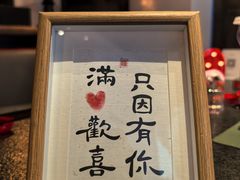 只因有你
滿歡喜